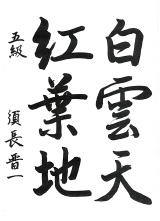 白雲天
紅葉地
五級
須長晋一